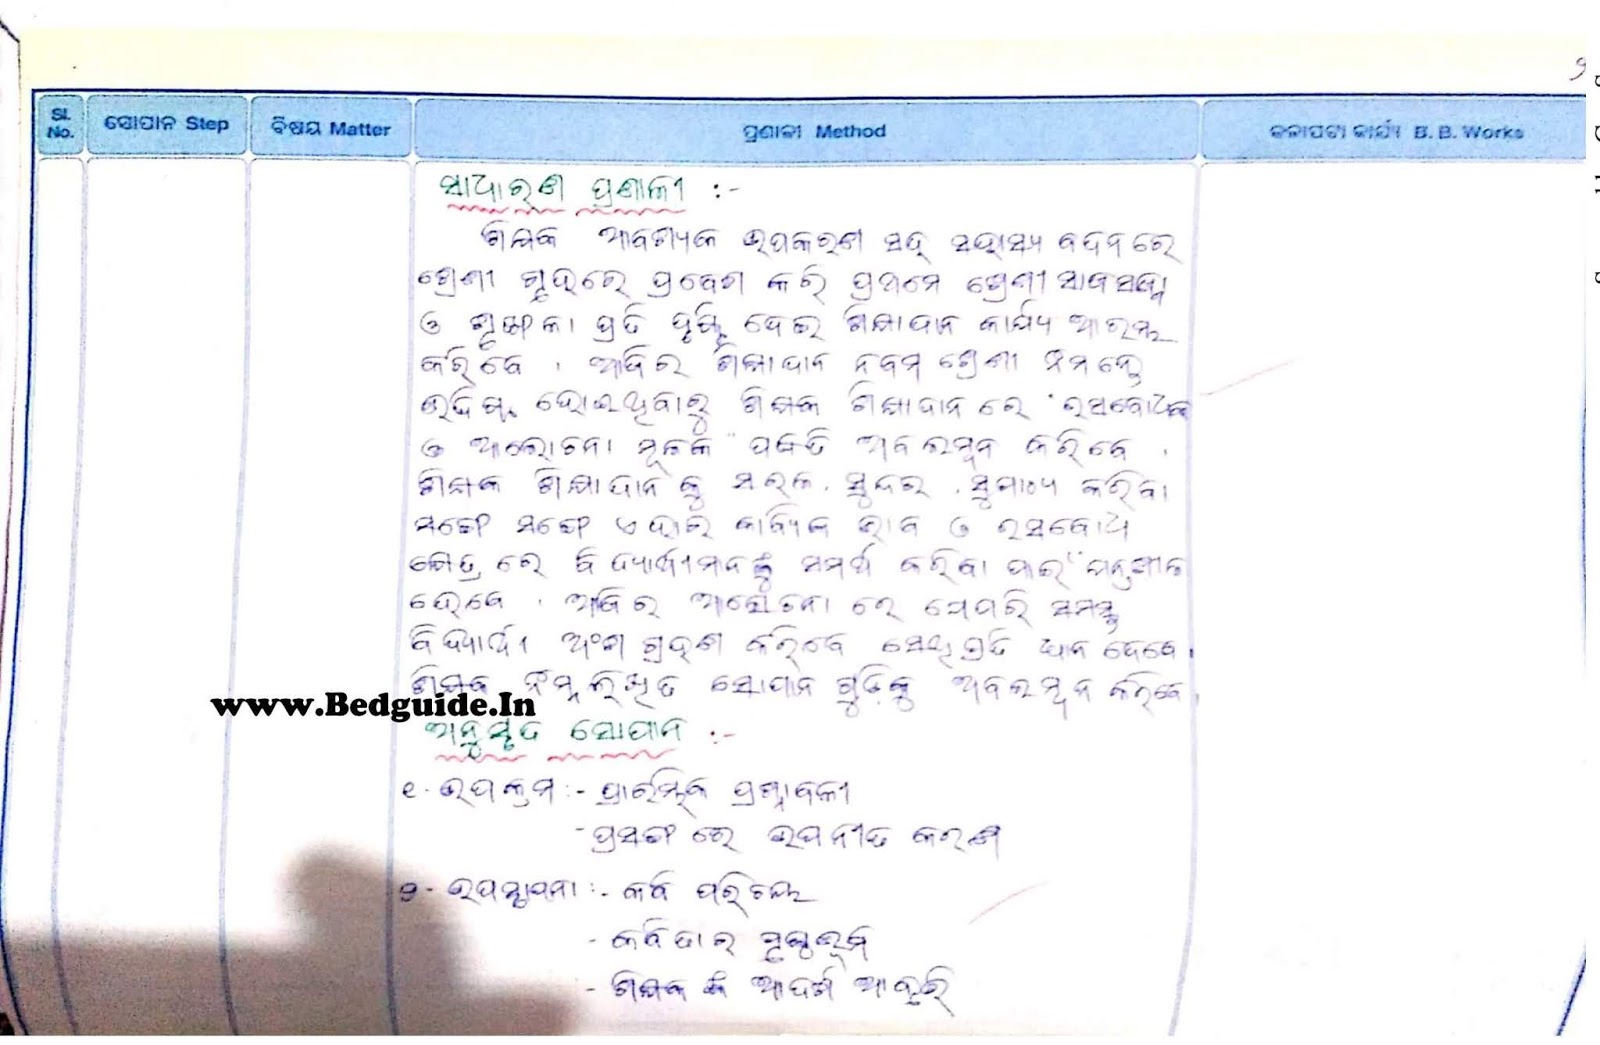 Sl. No. ସୋପାନ Step ବିଷୟ Matter ପ୍ରଣାଳୀ Method କଳାପଟା କାର୍ଯ୍ୟ B. B. Works
ସାଧାରଣ ପ୍ରଣାଳୀ :-
ଶିକ୍ଷକ ଆବଶ୍ୟକ ଉପକରଣ ସହ ସହାସ୍ୟ ବଦନରେ
ଶ୍ରେଣୀ ଗୃହରେ ପ୍ରବେଶ କରି ପ୍ରଥମେ ଶ୍ରେଣୀ ସାଜସଜ୍ଜା
ଓ ଶୃଙ୍ଖଳା ପ୍ରତି ଦୃଷ୍ଟି ଦେଇ ଶିକ୍ଷାଦାନ କାର୍ଯ୍ୟ ଆରମ୍ଭ
କରିବେ । ଆଜିର ଶିକ୍ଷାଦାନ ନବମ ଶ୍ରେଣୀ ନିମନ୍ତେ
ଉଦ୍ଦିଷ୍ଟ ହୋଇଥିବାରୁ ଶିକ୍ଷକ ଶିକ୍ଷାଦାନ ରେ "ରସବୋଧକ
ଓ ଆଲୋଚନା ମୂଳକ" ପଦ୍ଧତି ଅବଲମ୍ବନ କରିବେ ।
ଶିକ୍ଷକ ଶିକ୍ଷାଦାନ କୁ ସରଳ, ସୁନ୍ଦର, ସୁପାଠ୍ୟ କରିବା
ସଙ୍ଗେ ସଙ୍ଗେ ଏହାର କାବ୍ୟିକ ଭାବ ଓ ରସବୋଧ
କ୍ଷେତ୍ର ରେ ବିଦ୍ୟାର୍ଥୀମାନଙ୍କୁ ସମର୍ଥ କରିବା ପାଇଁ ଯତ୍ନଶୀଳ
ହେବେ । ଆଜିର ଆଲୋଚନା ରେ ଯେପରି ସମସ୍ତ
ବିଦ୍ୟାର୍ଥୀ ଅଂଶ ଗ୍ରହଣ କରିବେ ସେଥିପ୍ରତି ଧ୍ୟାନ ଦେବେ ।
ଶିକ୍ଷକ ନିମ୍ନଲିଖିତ ସୋପାନ ଗୁଡ଼ିକୁ ଅବଲମ୍ବନ କରିବେ ।
www.Bedguide.In
ଅନୁସୃତ ସୋପାନ :-
୧. ଉପକ୍ରମ :- ପ୍ରାରମ୍ଭିକ ପ୍ରଶ୍ନାବଳୀ
- ପ୍ରସଙ୍ଗ ରେ ଉପନୀତ କରଣ
୨. ଉପସ୍ଥାପନା :- କବି ପରିଚୟ
- କବିତାର ପୃଷ୍ଠଭୂମି
- ଶିକ୍ଷକ ଙ୍କ ଆଦର୍ଶ ଆବୃତ୍ତି